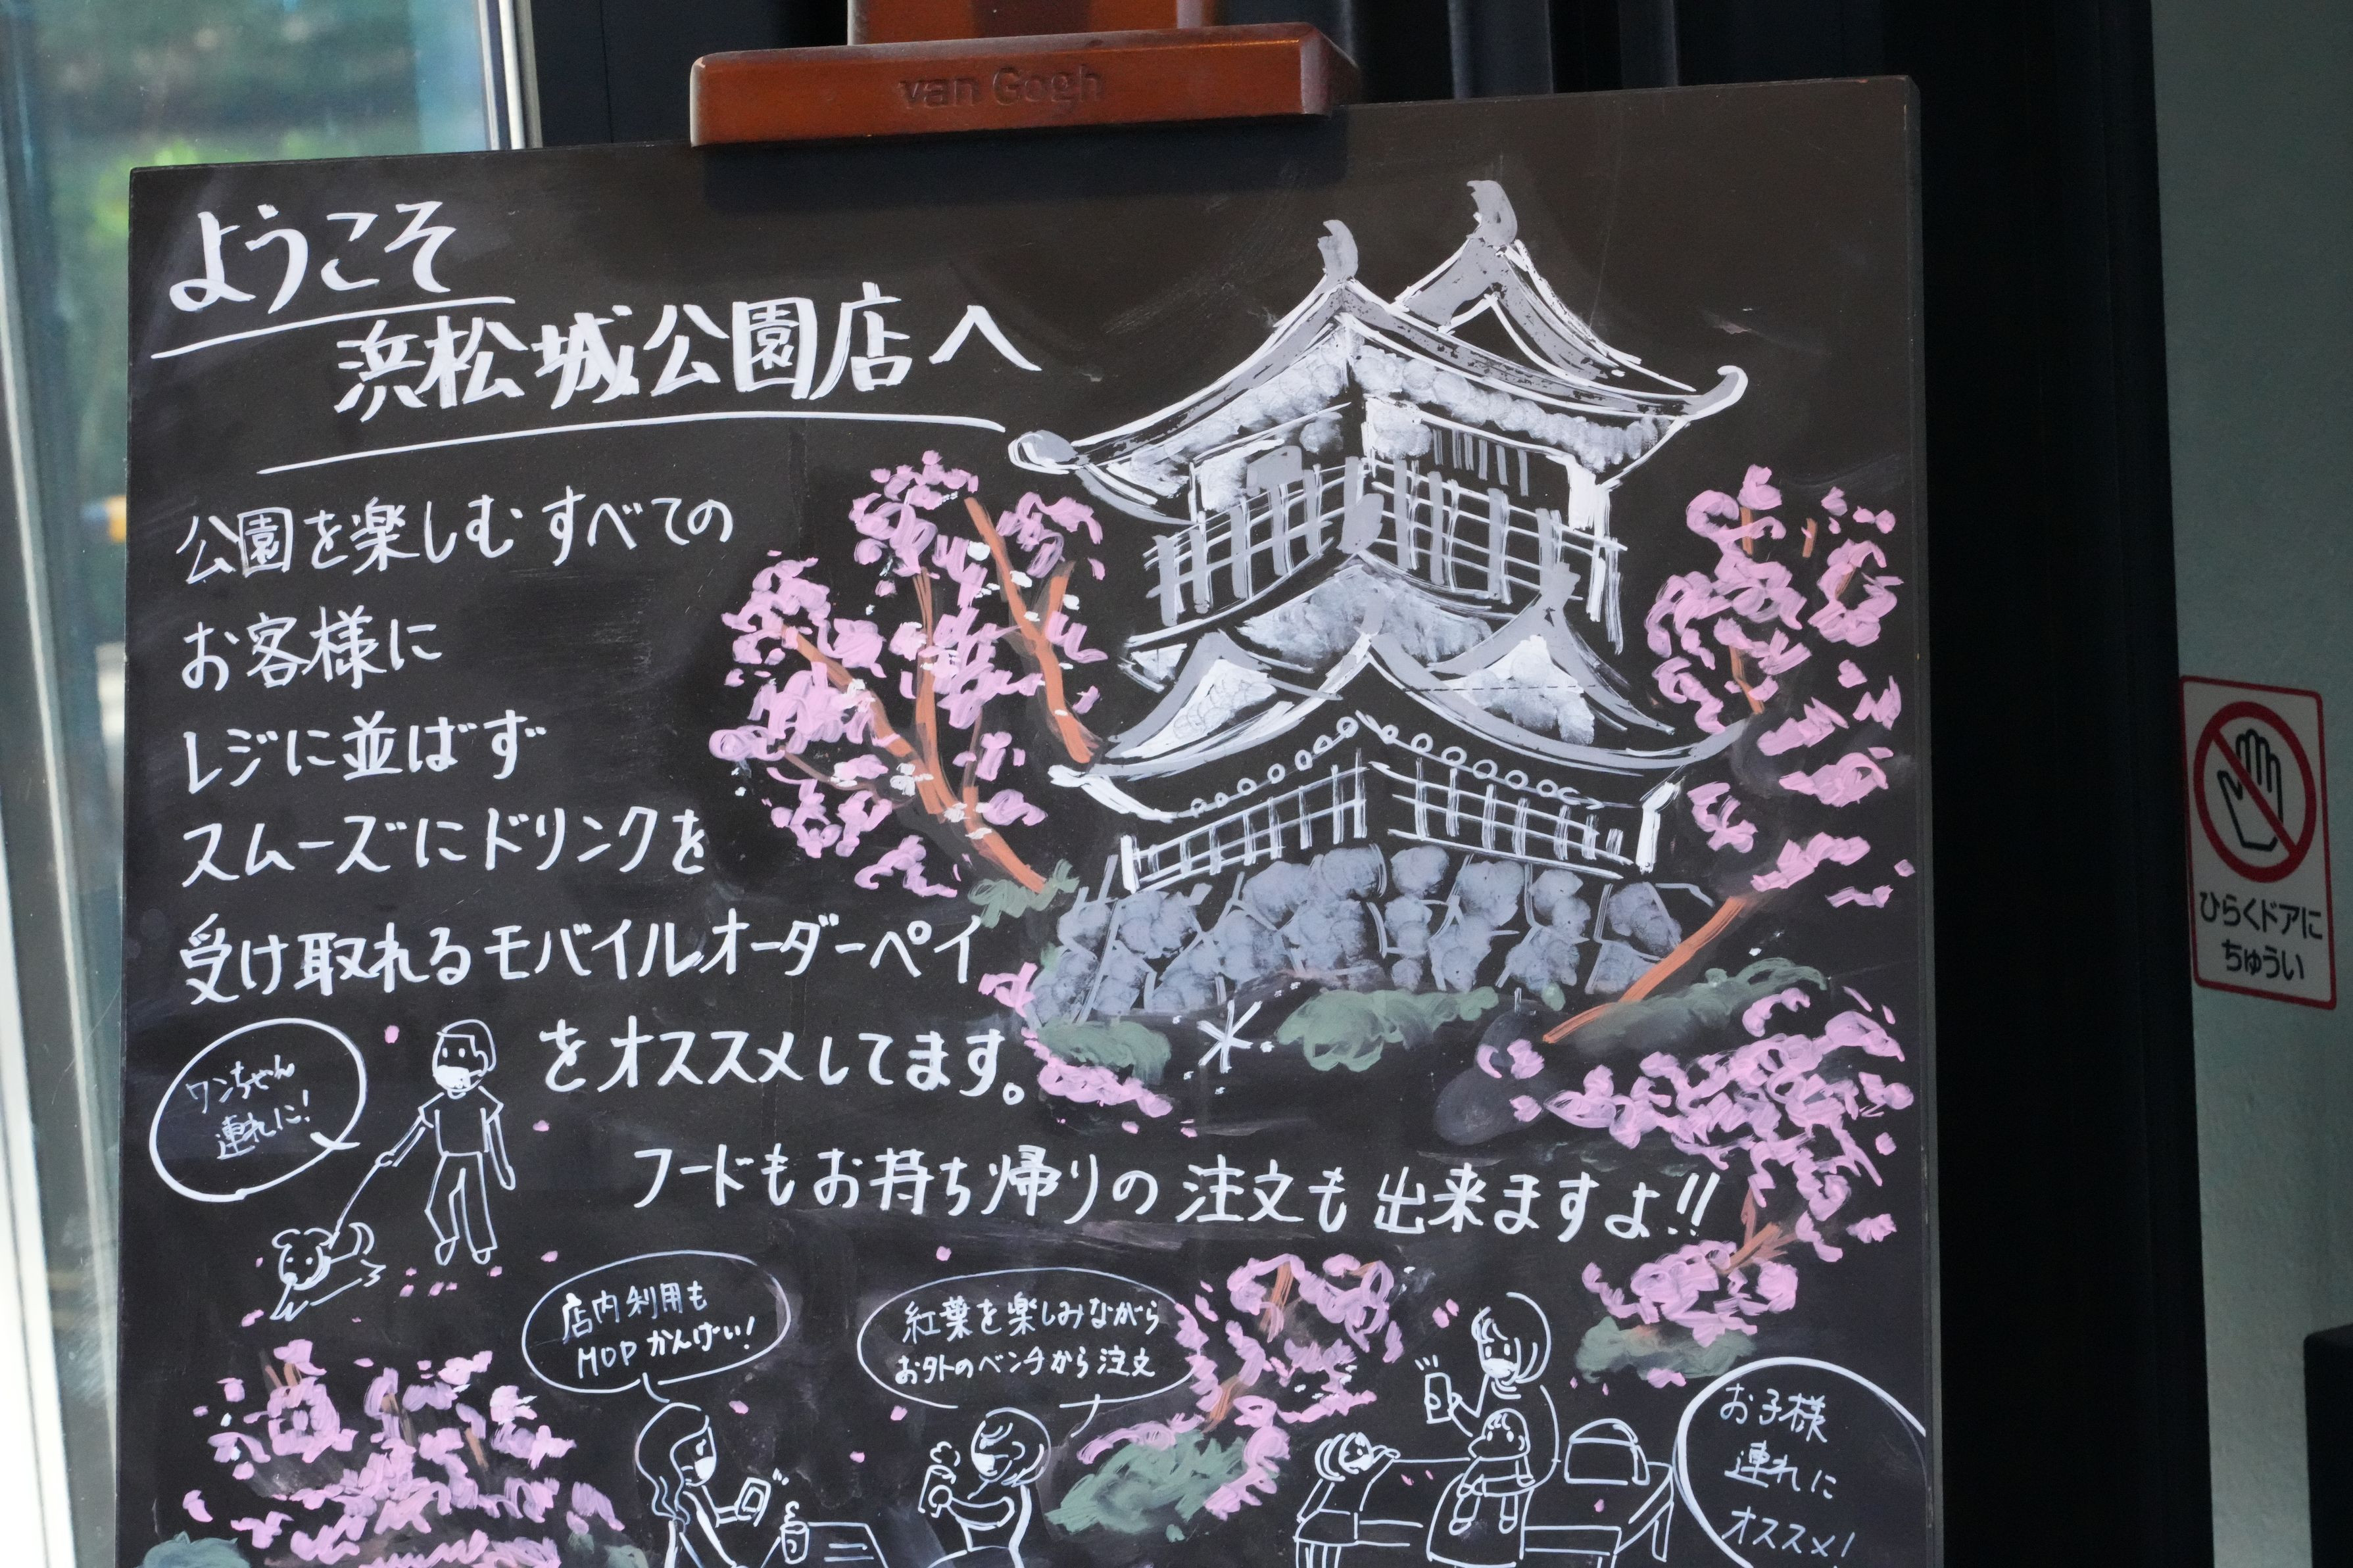 van Gogh
ようこそ
浜松城公園店へ
公園を楽しむすべての
お客様に
レジに並ばず
スムーズにドリンクを
受け取れるモバイルオーダーペイ
をオススメしてます。
フードもお持ち帰りの注文も出来ますよ!!
ワンちゃん
連れに!
店内利用も
MOPかんげい!
紅葉を楽しみながら
お外のベンチから注文
お子様
連れに
オススメ!
ひらくドアに
ちゅうい